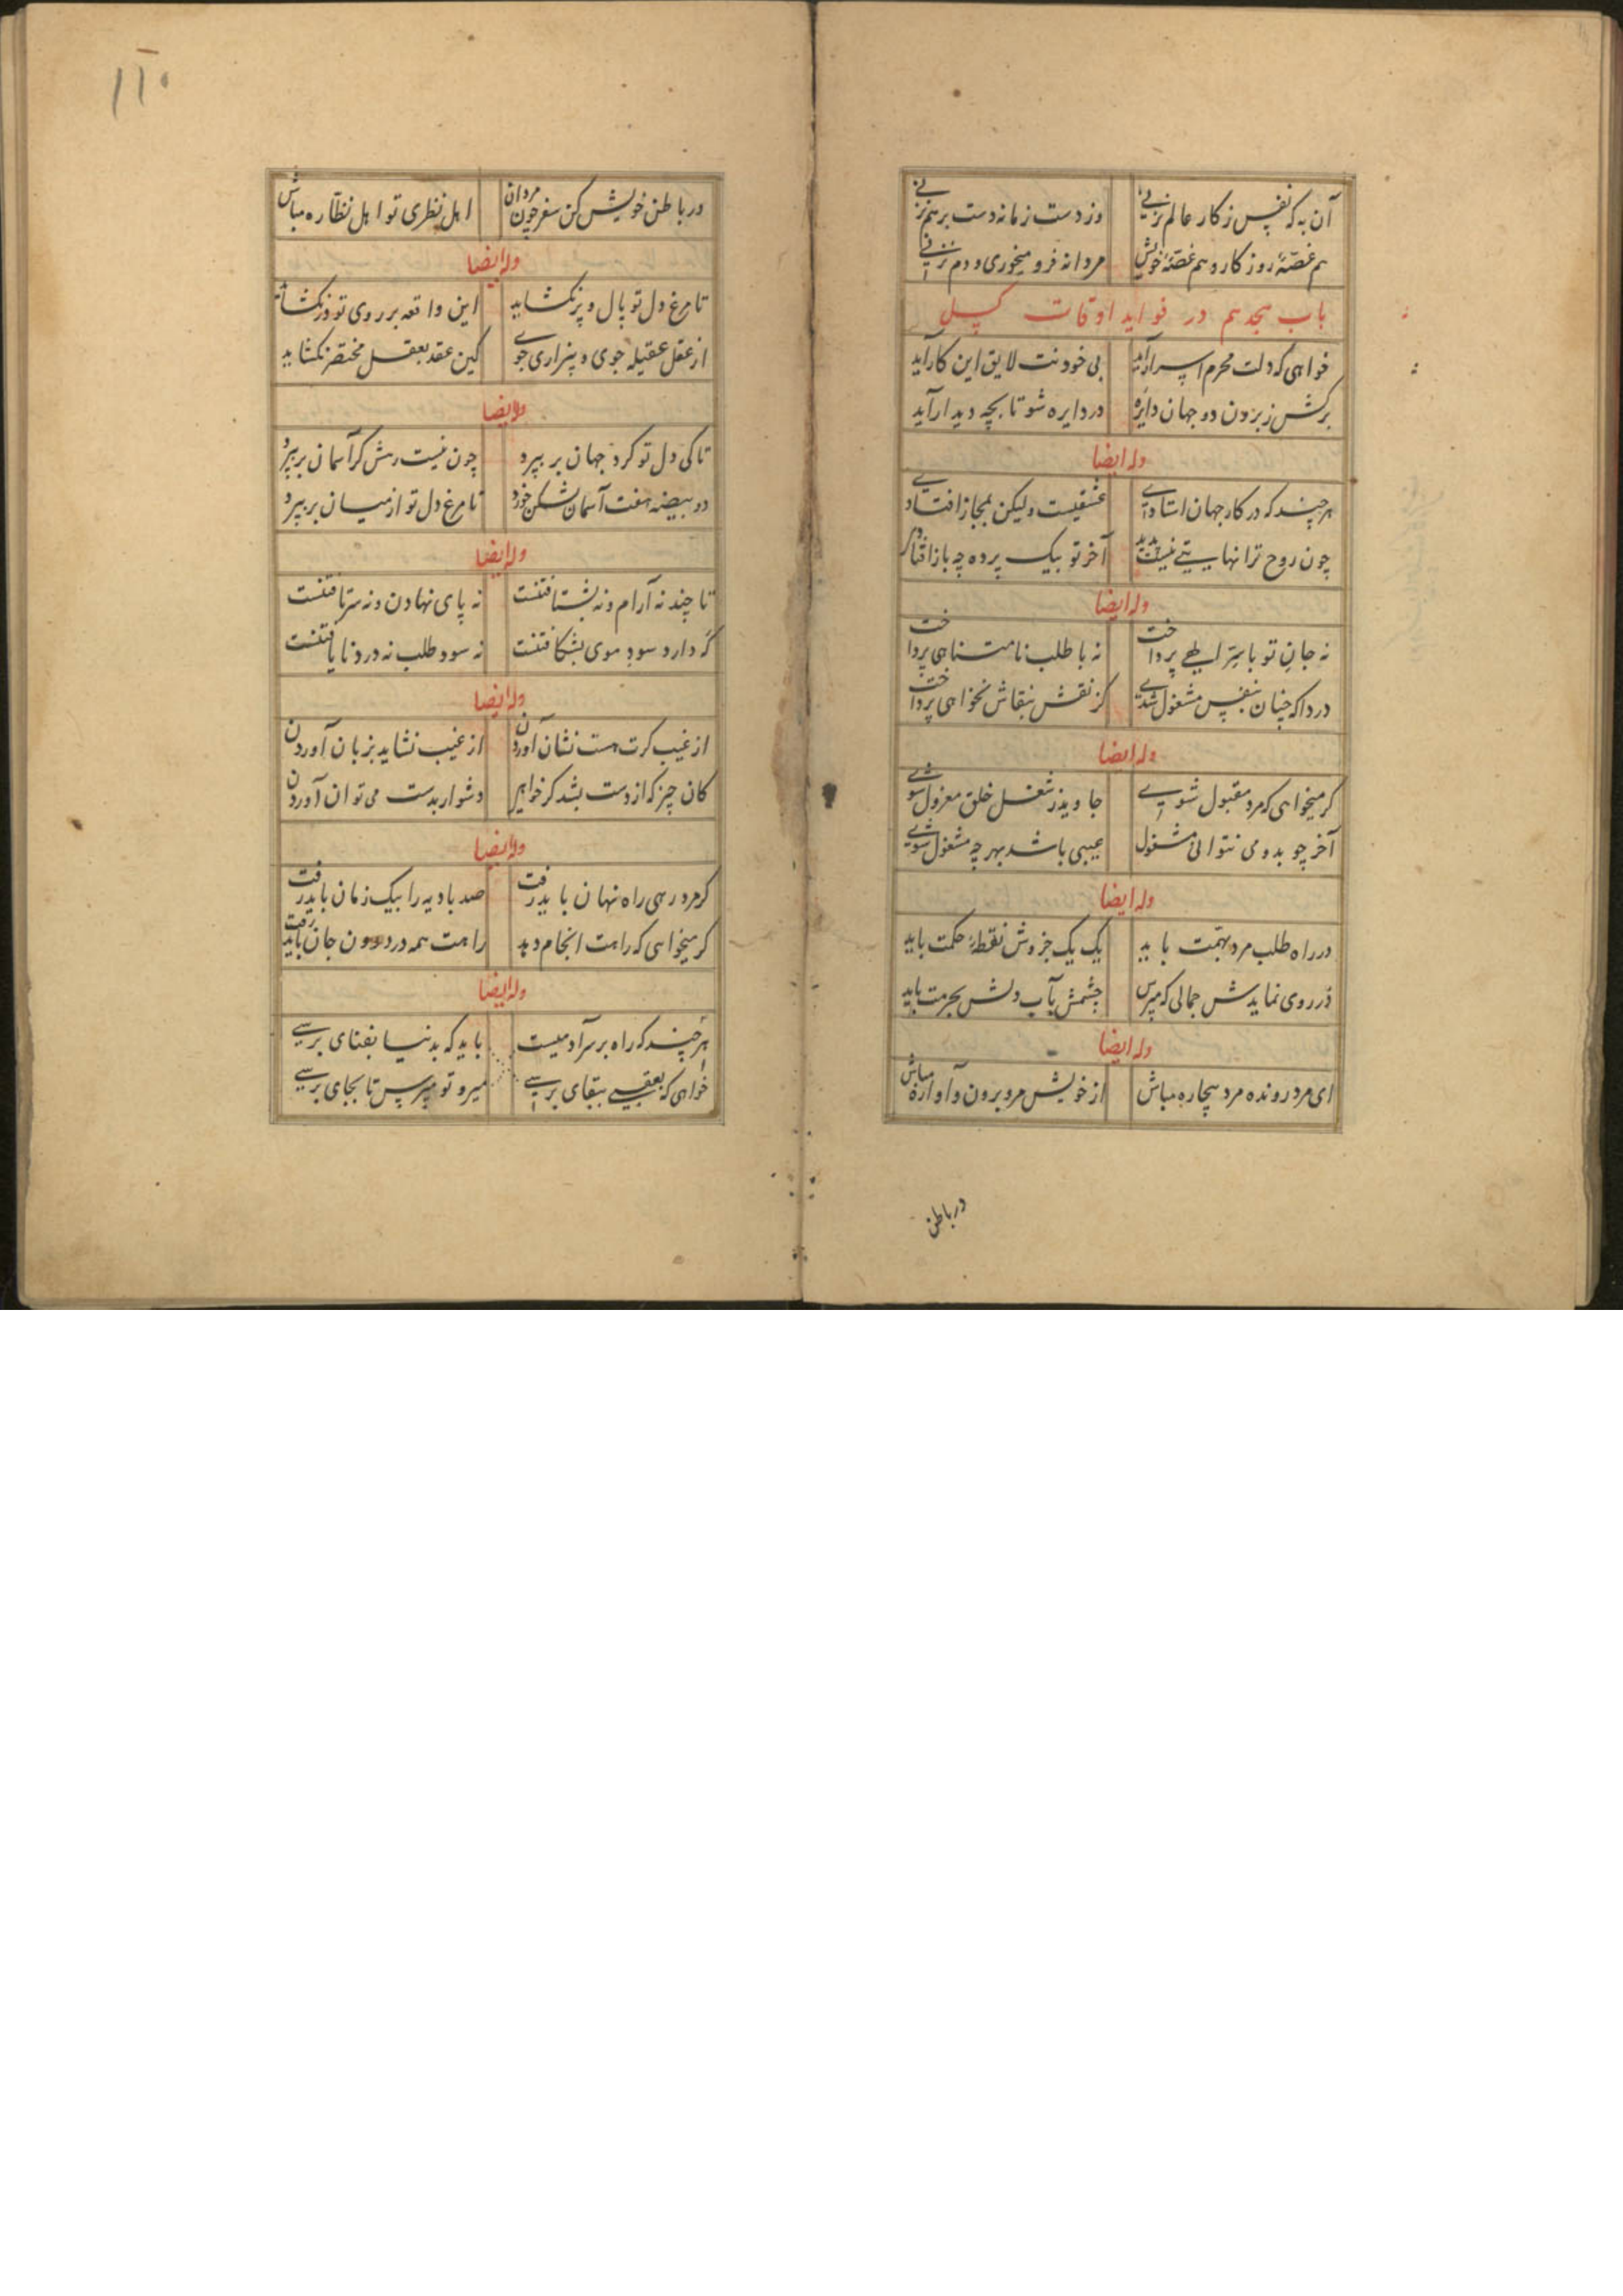 آن به که نفس ز کار عالم نزنی وز دست زمانه دست بر هم نزنی
هم غصّهٔ روزکار و هم غصّهٔ خویش مردانه فرو میخوری و دم نزنی
باب هجدهم در فواید اوقات
خواهی که دلت محرم اسرار آید بی خود نت لایق این کار آید
برکش ز برون دو جهان دایرهٔ در دایره شو تا بچه دیدار آید
وله ایضا
هرچند که در کار جهان استادی عشقیست ولیکن بمجاز افتاد
چون روح ترا نهایتی نیست پدید آخر تو بیک پرده چه باز افتاد
وله ایضا
نه جانِ تو با سِرّ الهی پرداخت نه با طلب نامتناهی پرداخت
دردا که چنان بنفس مشغول شدی کز نقش بنقاش نخواهی پرداخت
وله ایضا
کر میخواهی که مرد مقبول شوی جاوید ز شغل خلق معزول شوی
آخر چو بدو می نتوانی مشغول عیبی باشد بهر چه مشغول شوی
وله ایضا
در راه طلب مرد بهمّت باید یک یک جزوش نقطهٔ حکمت باید
در روی نمایدش جمالی که مپرس چشمش بآب دلش بحرمت باید
وله ایضا
ای مرد رونده مرد بیچاره مباش از خویش مرو برون و آواره مباش
در باطن
۱۱۰
در باطن خویش کن سفر چون مردان اهل نظری تو اهل نظّاره مباش
وله ایضا
تا مرغ دل تو بال و پر نکشاید این واقعه بر روی تو در نکشاید
از عقل عقیله جوی و بیزاری جوی کین عقد بعقل مختصر نکشاید
وله ایضا
تا کی دل تو کرد جهان بر بپرد چون نیست رهش کر آسمان بر بپرد
دو بیضه هفت آسمان شکن خورد تا مرغ دل تو از میان بر بپرد
وله ایضا
تا چند نه آرام و نه بشتافتنت نه پای نهادن و نه سر تافتنت
که دارد سود موی بشکافتنت نه سود طلب نه درد نایافتنت
وله ایضا
از غیب کرت هست نشان آوردن از غیب نشاید بزبان آوردن
کان چیز که از دست بشد کر خواهی دشوار بدست می توان آوردن
وله ایضا
کر مرد رهی راه نهان باید رفت صد بادیه را بیک زمان باید رفت
کر میخواهی که راهت انجام دهد راهت همه در درون جان باید رفت
وله ایضا
هرچند که راه بر سر آدمیست باید که بدنیا بفنای برسی
خواهی که بعقبی ببقای برسی میرو تو مپرس تا بجای برسی